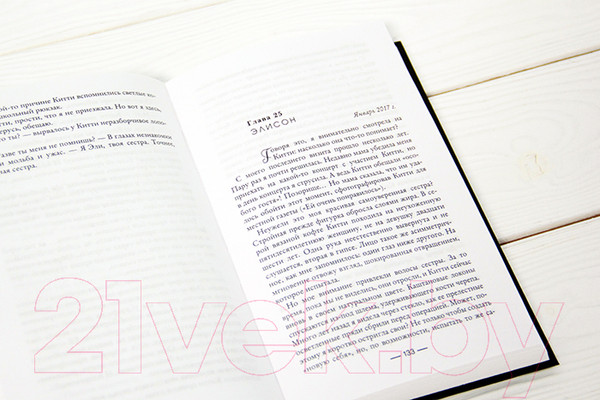 ой-то причине Китти вспомнились светлые ко-
школьный рюкзак.
тти, прости, что я не приезжала. Но вот я здесь,
ерусь, обещаю.
ты? — вырвалось у Китти неразборчивое лопо-
азве ты меня не помнишь? — В глазах незнакомки
мольба и ужас. — Я Эли, твоя сестра. Точнее,
ная сестра.
Глава 25
ЭЛИСОН
Январь 2017 г.
Говоря это, я внимательно смотрела на
Китти: насколько она что-то понимает?
С моего последнего визита прошло несколько лет.
Пару раз я почти решилась. Недавно мама убедила меня
приехать на какой-то концерт с участием Китти, но
в день концерта я струсила. А ведь Китти обещали «осо-
бого гостя»! Позорище... Но мама сказала, что им уда-
лось обойти этот момент, сфотографировав Китти для
местной газеты («Ей очень понравилось»).
Неужели это моя красивая самоуверенная сестра?
Стройная прежде фигура обросла слоями жира. В се-
рой вязаной кофте Китти походила на неухоженную
пятидесятилетнюю женщину, не на девушку двадцати
шести лет. Одна рука неестественно вывернута и не
слушается, вторая в гипсе. Лицо такое же асимметрич-
ное, как мне запомнилось: один глаз ниже другого. На
мгновение отвожу взгляд, шокированная отвращением,
которое испытала.
Но мое внимание привлекли волосы сестры. За то
время, пока мы не виделись, они отросли, и Китти сейчас
вновь в своем натуральном цвете. Каштановые локоны
спускаются из-под шлема, удерживающего кости черепа.
Много лет назад я видела через стекло, как ее прелестные
осветленные пряди сбрили перед операцией. Может, по-
этому я коротко остригла свои? Не только чтобы создать
«новую себя», но, по возможности, испытать то же са-
— 133 —
21vek.by